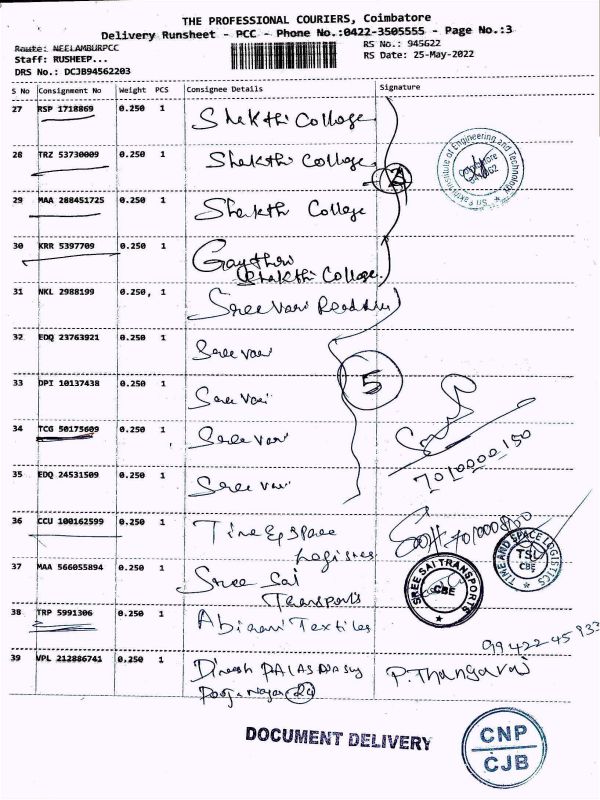 THE PROFESSIONAL COURIERS, Coimbatore
Delivery Runsheet - PCC - Phone No.:0422-3505555 - Page No.:3
Route: NEELAMBURPCC RS No.: 945622
Staff: RUSHEEP... RS Date: 25-May-2022
DRS No.: DCJB94562203
S No Consignment No Weight PCS Consignee Details Signature
27 RSP 1718869 0.250 1 Shakthi College
28 TRZ 53730009 0.250 1 Shakthi College
29 MAA 288451725 0.250 1 Shakthi College
30 KRR 5397709 0.250 1 Gaythri
Shakthi College
31 NKL 2988199 0.250 1 Sree Vari
32 EDQ 23763921 0.250 1 Sree Vari
33 DPI 10137438 0.250 1 Sree Vari
5
34 TCG 50175609 0.250 1 Sree Vari
7010000150
35 EDQ 24531509 0.250 1 Sree Vari
36 CCU 100162599 0.250 1 Time & Space
Logistics
TIME AND SPACE LOGISTICS
TSL
CBE
37 MAA 566055894 0.250 1 Sree Sai
Transports
SREE SAI TRANSPORTS
CBE
38 TRP 5991306 0.250 1 Abirami Textiles
9942245933
39 VPL 212886741 0.250 1 Dinesh
Nagar P. Thangaraj
DOCUMENT DELIVERY
CNP
CJB